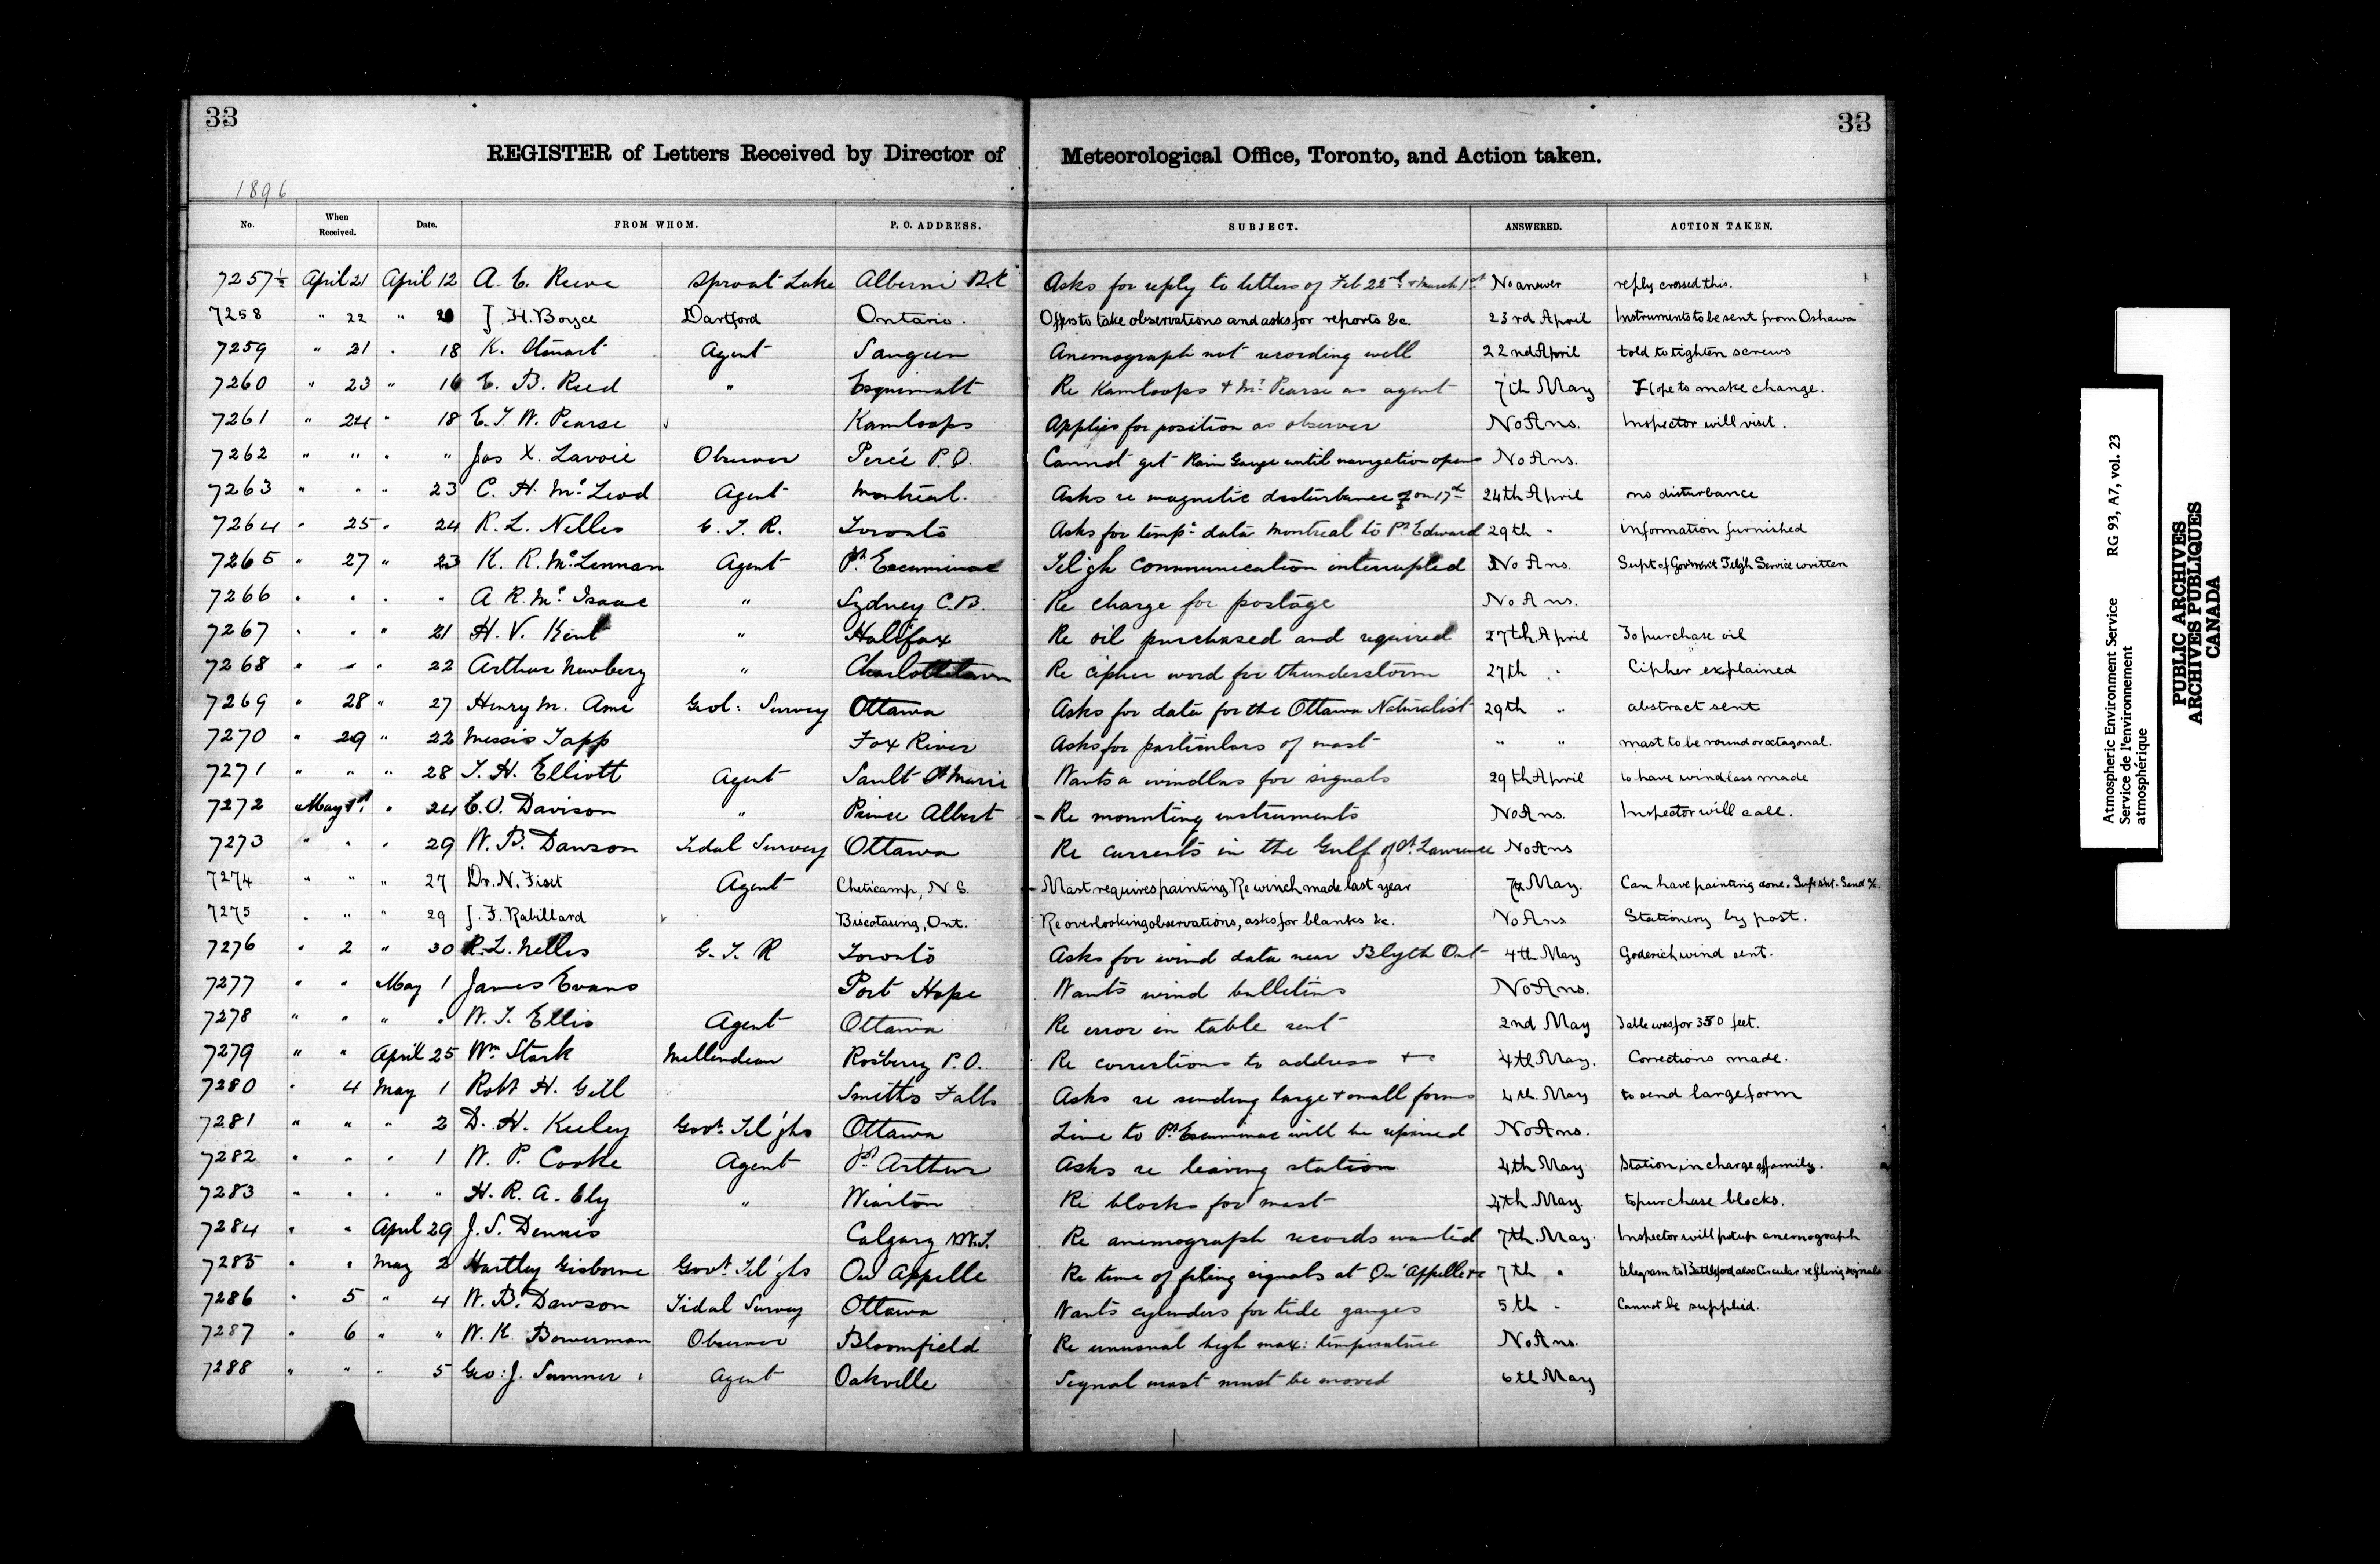 33
33
REGISTER of Letters Received by Director of Meteorological Office, Toronto, and Action taken.
1896
No. When Received. Date. FROM WHOM. P. O. ADDRESS. SUBJECT. ANSWERED. ACTION TAKEN.
7257½ April 21 April 12 A. E. Reeve Sproat Lake Alberni B.C. Asks for reply to letters of Feb 22nd & March 1st No answer reply crossed this.
7258 " 22 " 20 J. H. Boyce Dartford Ontario. Offers to take observations and asks for reports &c. 23rd April Instruments to be sent from Oshawa
7259 " 21 " 18 K. Stewart Agent Saugeen Anemograph not recording well 22nd April told to tighten screws
7260 " 23 " 16 E. B. Reed " Esquimalt Re Kamloops & Mr Pearse as agent 7th May Hope to make change.
7261 " 24 " 18 E. T. W. Pearse Kamloops Applies for position as observer No Ans. Inspector will visit.
7262 " " " " Jos X. Lavoie Observer Percé P.Q. Cannot get Rain Gauge until navigation opens No Ans.
7263 " " " 23 C. H. McLeod Agent Montreal. Asks re magnetic disturbance on 17th 24th April no disturbance
7264 " 25 " 24 R. L. Nelles G. T. R. Toronto Asks for temp. data Montreal to Pt Edward 29th " information furnished
7265 " 27 " 23 K. R. McLennan Agent Pt. Escuminac Tel'gh communication interrupted No Ans. Supt of Gov'ment Tel'gh Service written
7266 " " " " A. R. McIsaac " Sydney C.B. Re charge for postage No Ans.
7267 " " " 21 H. V. Kent " Halifax Re oil purchased and required 27th April To purchase oil
7268 " " " 22 Arthur Newbery " Charlottetown Re cipher word for thunderstorm 27th " Cipher explained
7269 " 28 " 27 Henry M. Ami Geol: Survey Ottawa Asks for data for the Ottawa Naturalist 29th " abstract sent
7270 " 29 " 22 Messrs Tapp Fox River Asks for particulars of mast " " mast to be round or octagonal.
7271 " " " 28 T. H. Elliott Agent Sault St Marie Wants a windlass for signals 29th April to have windlass made
7272 " May 1st " 24 C. O. Davison " Prince Albert - Re mounting instruments No Ans. Inspector will call.
7273 " " " 29 W. B. Dawson Tidal Survey Ottawa Re currents in the Gulf of St. Lawrence No Ans
7274 " " " 27 Dr. N. Fiset Agent Cheticamp, N.S. - Mast requires painting. Re winch made last year 7th May. Can have painting done. Send %.
7275 " " " 29 J. F. Rabillard Biscotasing, Ont. Re overlooking observations, asks for blanks &c. No Ans Stationery by post.
7276 " 2 " 30 R. L. Nelles G. T. R Toronto Asks for wind data near Blyth Ont 4th May Goderich wind sent.
7277 " " May 1 James Evans Port Hope Wants wind bulletins No Ans.
7278 " " " " W. T. Ellis Agent Ottawa Re error in table sent 2nd May Table was for 350 feet.
7279 " " April 25 Wm Stark Rosbery P.O. Re corrections to address &c 4th May. Corrections made.
7280 " 4 May 1 Robt H. Gill Smiths Falls Asks re sending large & small forms 4th. May to send large form
7281 " " " 2 D. H. Keeley Govt. Tel'ghs Ottawa Line to Pt. Escuminac will be repaired No Ans.
7282 " " " 1 W. P. Cooke Agent Pt. Arthur Asks re leaving station 4th May Station in charge of family.
7283 " " " " H. R. A. Ely " Wiarton Re blocks for mast 4th. May. to purchase blocks.
7284 " " April 29 J. S. Dennis Calgary N.W.T. Re anemograph records wanted 7th. May. Inspector will put up anemograph
7285 " " May 2 Hartley Gisborne Govt. Tel'ghs Qu'Appelle Re time of filing signals at Qu'Appelle &c 7th " telegram to Battleford also Circular re filing signals
7286 " 5 " 4 W. B. Dawson Tidal Survey Ottawa Wants cylinders for tide gauges 5th " Cannot be supplied.
7287 " 6 " " W. K Bowerman Observer Bloomfield Re unusual high max: temperature No Ans.
7288 " " " 5 Geo: J. Sumner Agent Oakville Signal mast must be moved 6th May
Atmospheric Environment Service RG 93, A7, vol. 23
Service de l'environnement
atmosphérique
PUBLIC ARCHIVES
ARCHIVES PUBLIQUES
CANADA